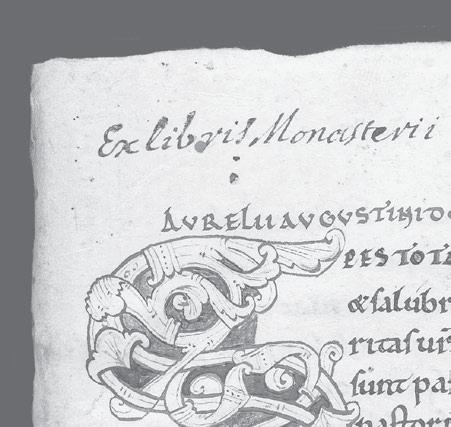 Ex libris Monasterii
AVRELII AVGVSTINI DO
SPES TOTA
& salubr
ritas ur
sunt pas
pastori